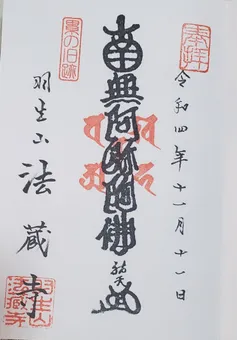 奉拝
令和四年十一月十一日
南無阿弥陀佛
祐天
累の旧跡
羽生山 法蔵寺
羽生山
法蔵寺